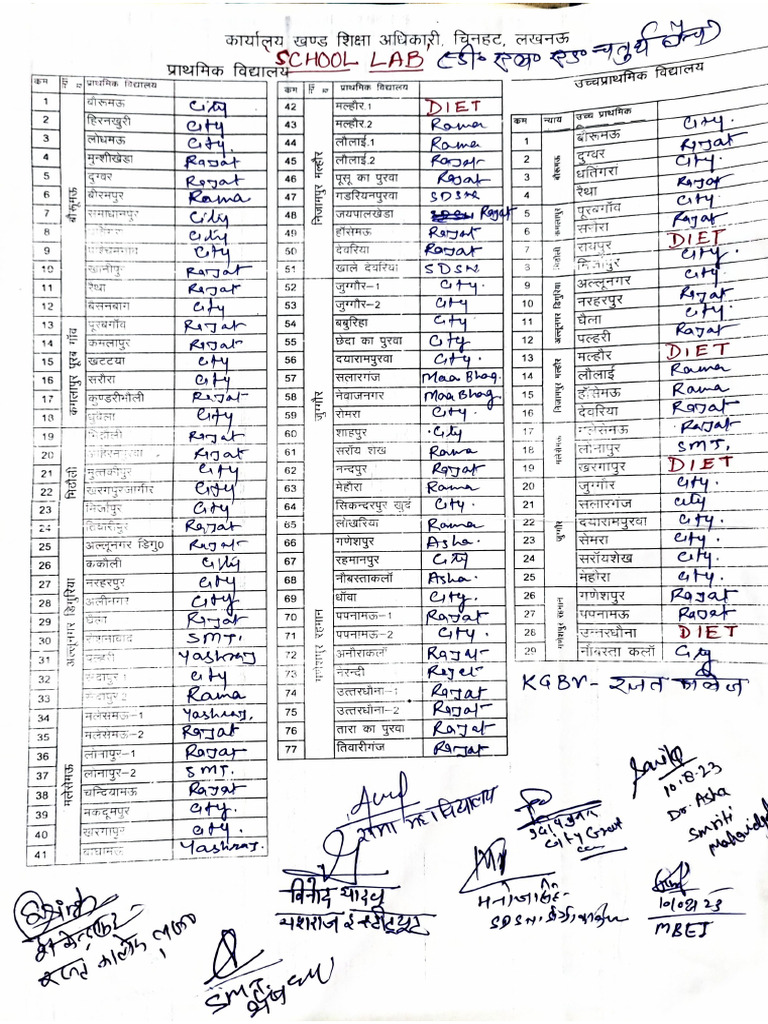 कार्यालय खण्ड शिक्षा अधिकारी, चिनहट, लखनऊ
SCHOOL LAB (डी० एल० एड० चतुर्थ
प्राथमिक विद्यालय
क्रम प्राथमिक विद्यालय
1 बौरूमऊ City
2 हिरनखुरी City
3 लोधमऊ City
4 मुन्शीखेडा Rajat
5 दुग्वर Rajat
6 बौरमपुर Rama
7 समाधानपुर City
8 City
9 City
10 खानीपुर Rajat
11 रैथा Rajat
12 बेसनबाग City
13 पूरबगाँव Rajat
14 कमलापुर Rajat
15 खटटया City
16 सरौरा City
17 कुण्डरीभौली Rajat
18 City
19 मिठौली Rajat
20 Rajat
21 मुत्तकीपुर City
22 खरगपुरजागीर City
23 मिर्जापुर City
24 तिवारीपुर Rajat
25 अल्लूनगर डिगु0 Rajat
26 ककौली City
27 नरहरपुर City
28 अलीनगर City
29 घैला Rajat
30 SMJ.
31 पल्हरी Yashraj
32 City
33 Rama
34 मलेसेमऊ-1 Yashraj.
35 मलेसेमऊ-2 Rajat
36 लोनापुर-1 Rajat
37 लोनापुर-2 SMJ.
38 चन्दियामऊ Rajat
39 मकदूमपुर City.
40 खरगापुर City.
41 बाघामऊ Yashraj.
बौरूमऊ
कमलापुर पूरब गाँव
मिठौली
अल्लूनगर डिगुरिया
मलेसेमऊ
प्राथमिक विद्यालय
42 मल्हौर.1 DIET
43 मल्हौर.2 Rama
44 लौलाई.1 Rama
45 लौलाई.2 Rajat
46 पूसू का पुरवा Rajat
47 गडरियनपुरवा SDSN
48 जयपालखेडा Rajat
49 हाँसेमऊ Rajat
50 देवरिया Rajat
51 खाले देवरिया SDSN
52 जुग्गौर-1 City.
53 जुग्गौर-2 City
54 बबुरिहा City.
55 छेदा का पुरवा City
56 दयारामपुरवा City.
57 सलारगंज Maa Bhag.
58 नेवाजनगर Maa Bhag
59 सेमरा City.
60 शाहपुर City
61 सरॉय शेख Rama
62 नन्दपुर Rajat
63 मेहौरा Rama
64 सिकन्दरपुर खुर्द City.
65 लोखरिया Rama
66 गणेशपुर Asha.
67 रहमानपुर City
68 नौबस्ताकलाँ Asha.
69 धाँवा City.
70 पपनामऊ-1 Rajat
71 पपनामऊ-2 City.
72 अनौराकलाँ Rajat
73 नरेन्दी Rajat
74 उत्तरधौना-1 Rajat
75 उत्तरधौना-2 Rajat
76 तारा का पुरवा Rajat
77 तिवारीगंज Rajat
निजामपुर मल्हौर
जुग्गौर
गणेशपुर रहमान
उच्चप्राथमिक विद्यालय
क्रम न्याय उच्च प्राथमिक
1 बौरूमऊ City.
2 दुग्वर Rajat
3 धतिंगरा City.
4 रैथा Rajat
5 पूरबगाँव City
6 सरौरा Rajat
7 रायपुर DIET
8 मिर्जापुर City.
9 अल्लूनगर City
10 नरहरपुर Rajat
11 घैला City.
12 पल्हरी Rajat
13 मल्हौर DIET
14 लौलाई Rama
15 हाँसेमऊ Rama
16 देवरिया Rajat
17 मलेसेमऊ Rajat
18 लोनापुर SMJ.
19 खरगापुर DIET
20 जुग्गौर City.
21 सलारगंज City
22 दयारामपुरवा City.
23 सेमरा City.
24 सरॉयशेख City.
25 मेहोरा City.
26 गणेशपुर Rajat
27 पपनामऊ Rajat
28 उत्तरधौना DIET
29 नौबस्ता कलाँ City
बौरूमऊ
कमलापुर
मिठौली
अल्लूनगर डिगुरिया
निजामपुर मल्हौर
मलेसेमऊ
जुग्गौर
KGBV- रजत कालेज
रामा महाविद्यालय
City Group
10.8.23
Dr. Asha
Smriti
विनोद यादव
यशराज इंस्टीट्यूट
SDSN
10/08/23
MBEI
SMJ.